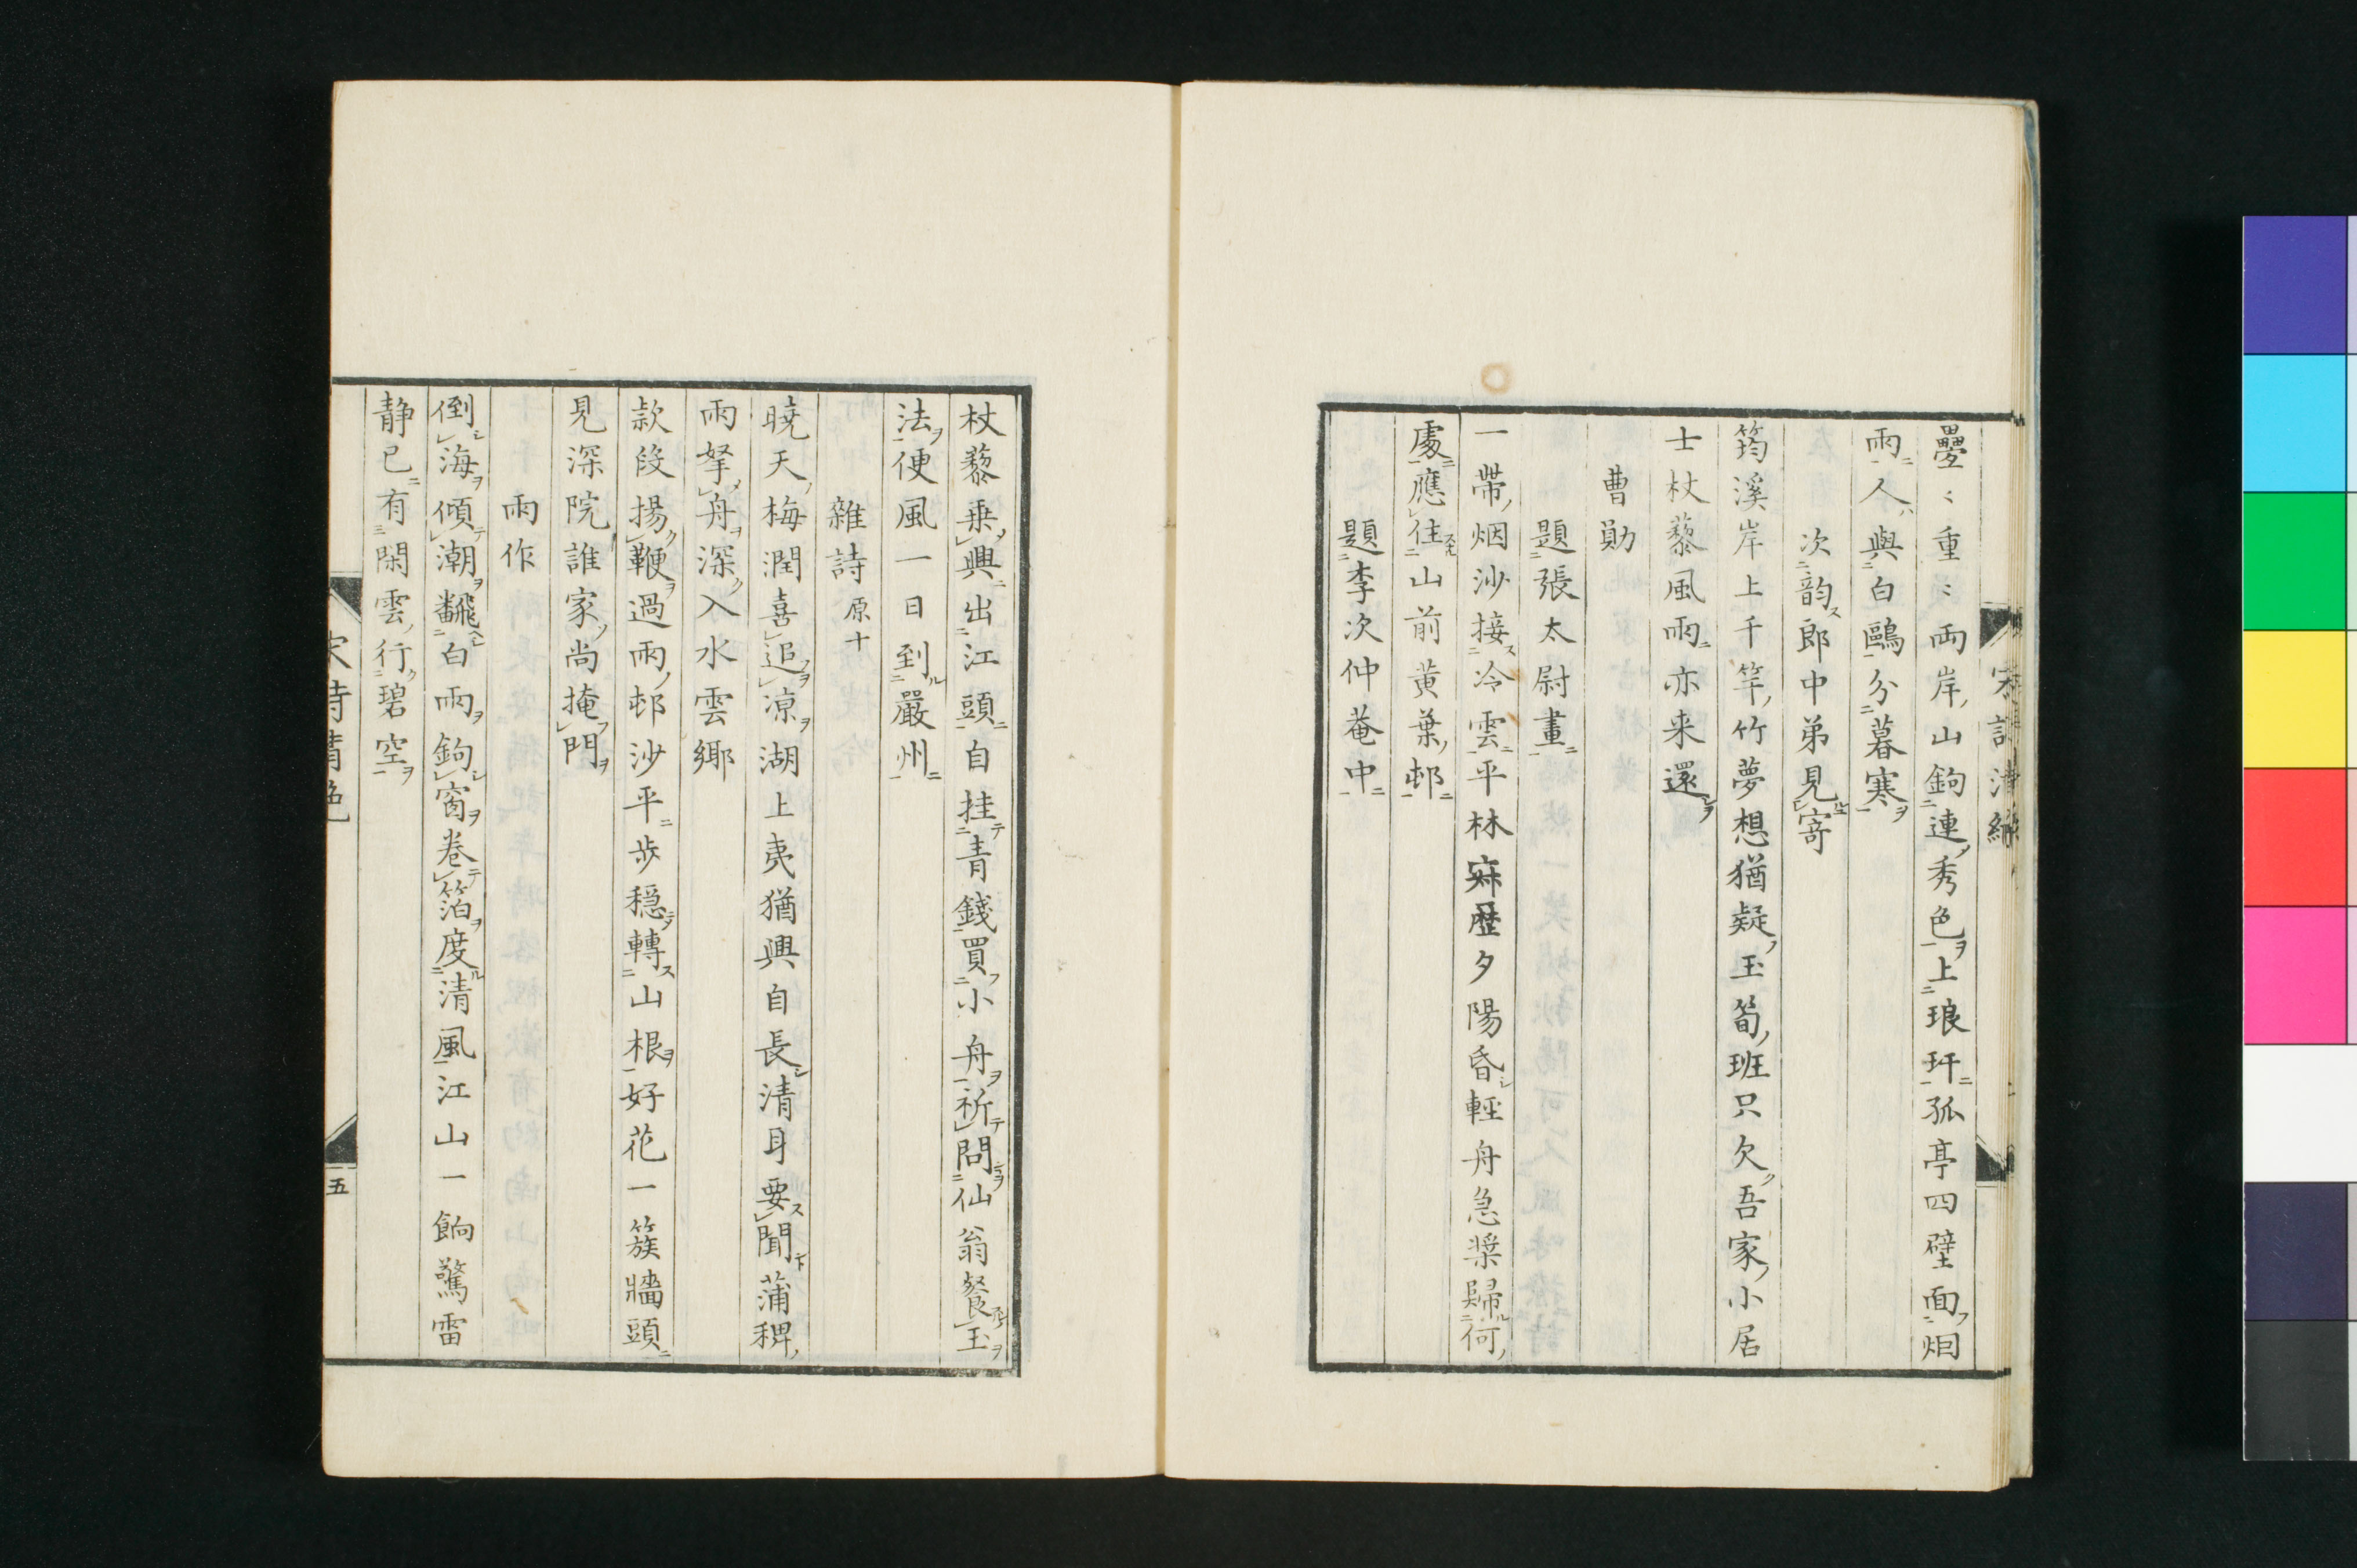 疊〻重〻両岸山鉤連秀色上琅玕孤亭四壁面烟
雨人與白鷗分暮寒
次韵郎中弟見寄
筠溪岸上千竿竹夢想猶疑玉筍班只欠吾家小居
士杖藜風雨亦来還
曹勛
題張太尉畫
一帶烟沙接冷雲平林寂歴夕陽昏輕舟急槳歸何
處應住山前黄葉邨
題李次仲菴中
杖藜乗興出江頭自挂青錢買小舟祈問仙翁餐玉
法便風一日到嚴州
雜詩原十
曉天梅潤喜追凉湖上夷猶興自長清耳要聞蒲稗
雨拏舟深入水雲鄉
款段揚鞭過雨邨沙平歩穏轉山根好花一簇牆頭
見深院誰家尚掩門
雨作
倒海傾潮飜白雨鉤窗卷箔度清風江山一餉驚雷
静已有閑雲行碧空
五